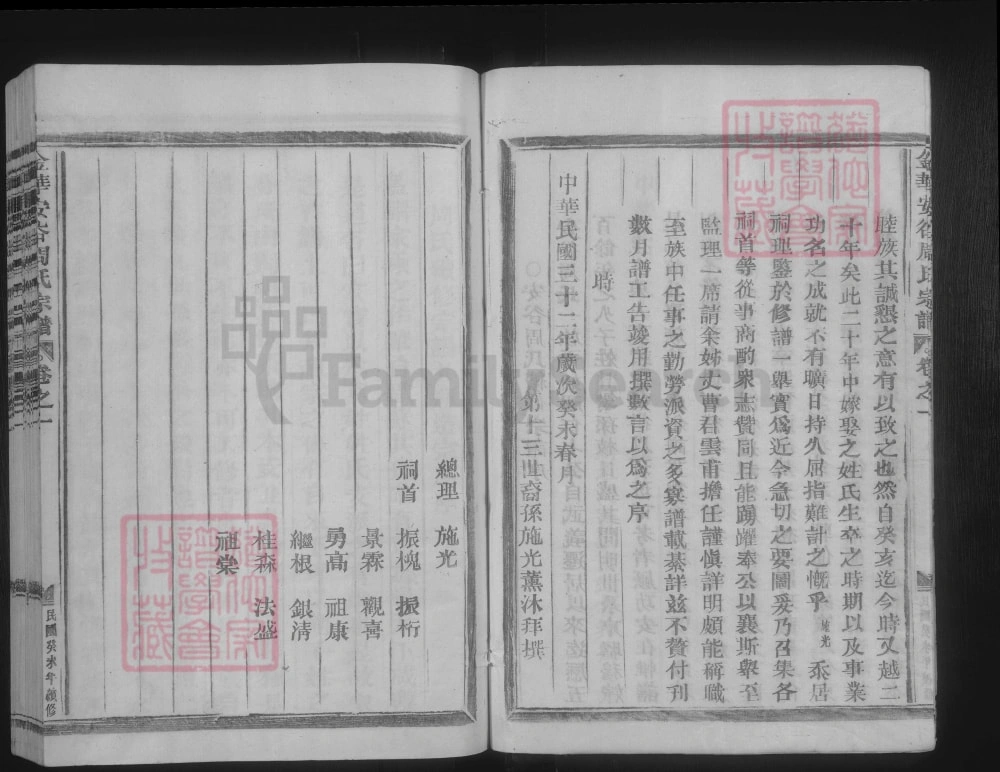 金華安谷周氏宗譜 卷之一
睦族其誠懇之意有以致之也然自癸亥迄今時又越二
十年矣此二十年中嫁娶之姓氏生卒之時期以及事業
功名之成就不有曠日持久屈指難計之慨乎 施光 忝居
祠理鑒於修譜一舉實爲近今急切之要圖爰乃召集各
祠首等從事商酌衆志贊同且能踴躍奉公以襄斯舉至
監理一席請余姊丈曹君雲甫擔任謹慎詳明頗能稱職
至族中任事之勤勞派資之多寡譜載綦詳玆不贅付刊
數月譜工告竣用撰數言以爲之序
時
中華民國三十二年歲次癸未春月
第十三世裔孫施光薰沐拜撰
總理 施光
祠首 振槐 振桁
景霖 觀喜
勇高 祖康
繼根 銀清
桂森 法盛
祖棠
金華安谷周氏宗譜 卷之一
民國癸未年續修
FamilySearch